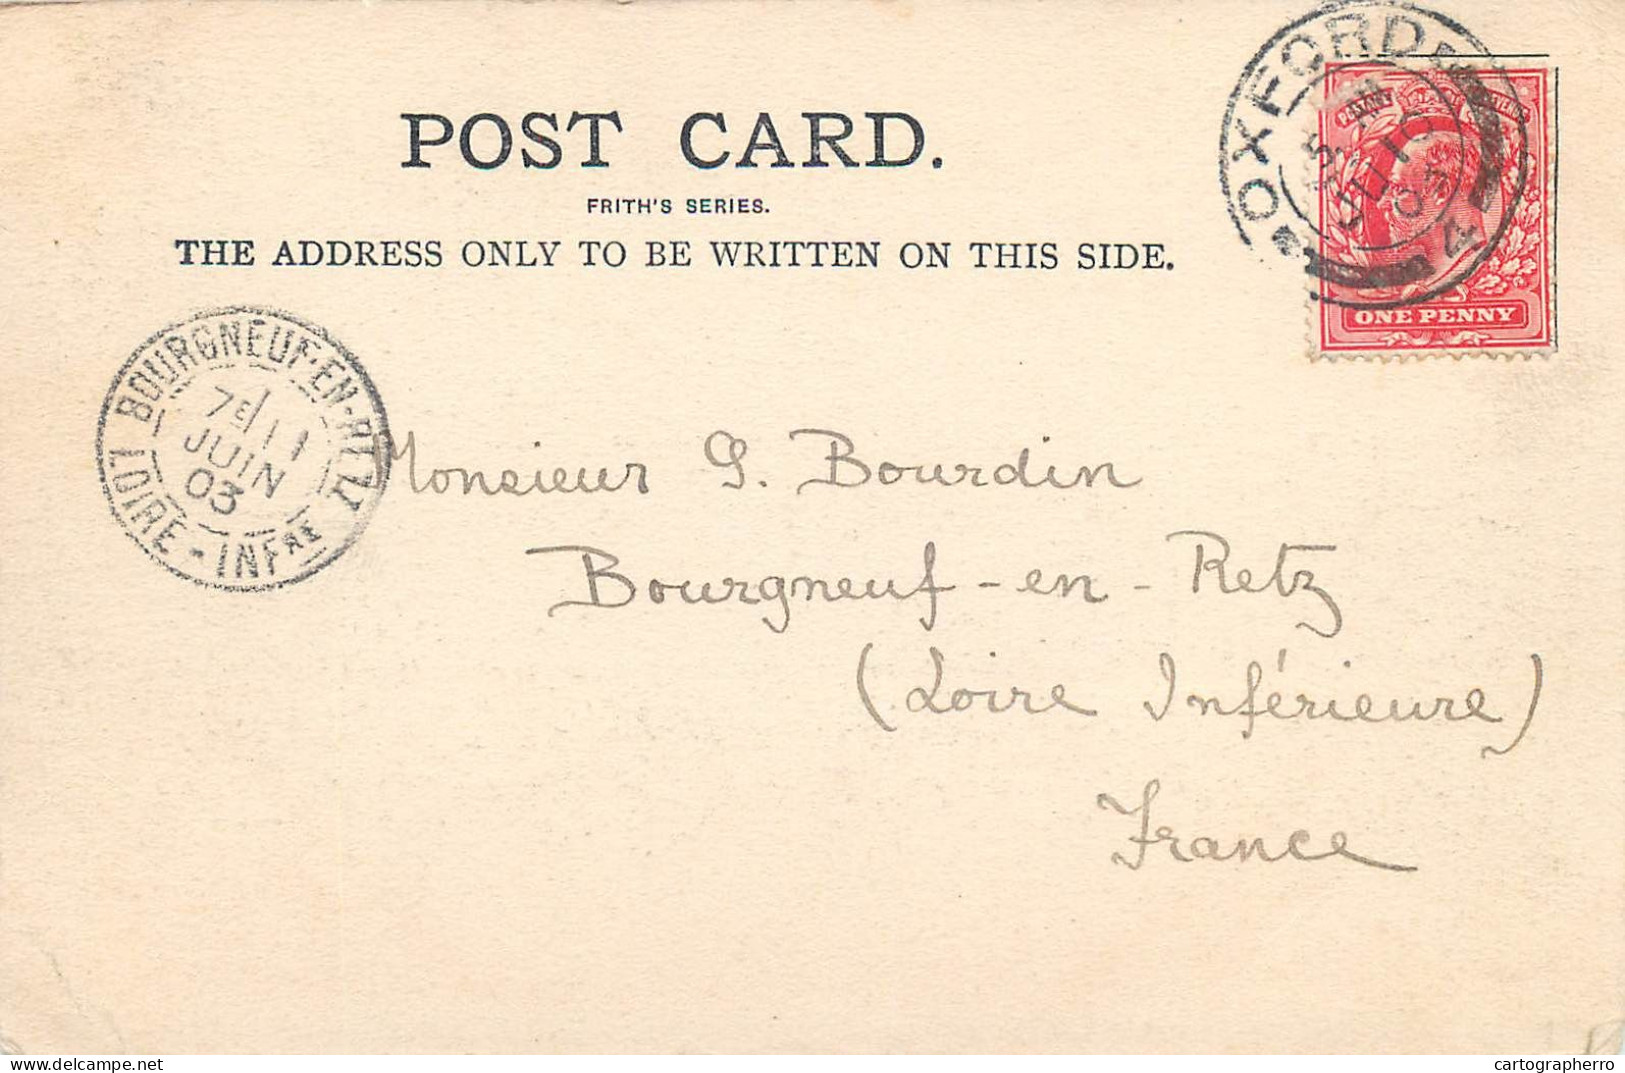 POST CARD.
FRITH'S SERIES.
THE ADDRESS ONLY TO BE WRITTEN ON THIS SIDE.
OXFORD
JU 10
03
ONE PENNY
BOURGNEUF-EN-RETZ
7E 11
JUIN
03
LOIRE-INFRE
Monsieur G. Bourdin
Bourgneuf-en-Retz
(Loire Inférieure)
France
cartographerro